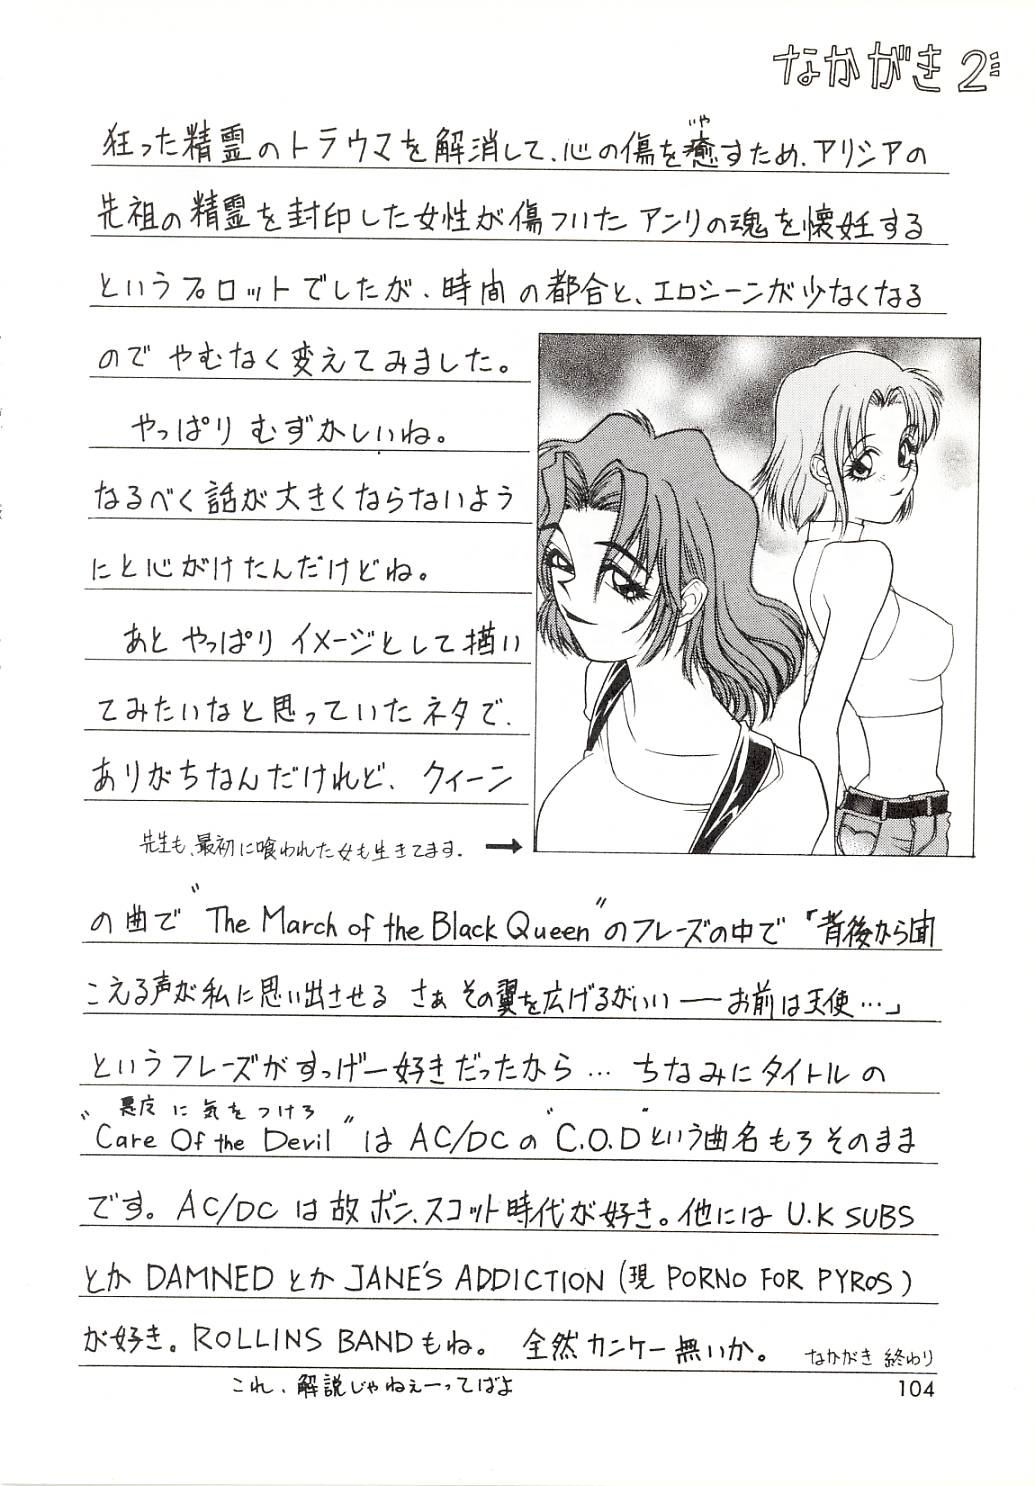 なかがき2
狂った精霊のトラウマを解消して、心の傷を癒すため、アリシアの
いや
先祖の精霊を封印した女性が傷ついたアンリの魂を懐妊する
というプロットでしたが、時間の都合と、エロシーンが少なくなる
のでやむなく変えてみました。
やっぱりむずかしいね。
なるべく話が大きくならないよう
にと心がけたんだけどね。
あとやっぱりイメージとして描い
てみたいなと思っていたネタで、
ありがちなんだけれど、クィーン
先生も、最初に喰われた女も生きてます。→
の曲で"The March of the Black Queen"のフレーズの中で「背後から聞
こえる声が私に思い出させる さぁ その翼を広げるがいい――お前は天使…」
というフレーズがすっげー好きだったから… ちなみにタイトルの
悪魔に気をつけろ
"Care Of the Devil"は AC/DCの"C.O.D"という曲名もろそのまま
です。AC/DCは故ボン、スコット時代が好き。他には U.K SUBS
とか DAMNED とか JANE'S ADDICTION (現 PORNO FOR PYROS)
が好き。ROLLINS BANDもね。 全然カンケー無いか。 なかがき 終わり
これ、解説じゃねぇーってばよ
104